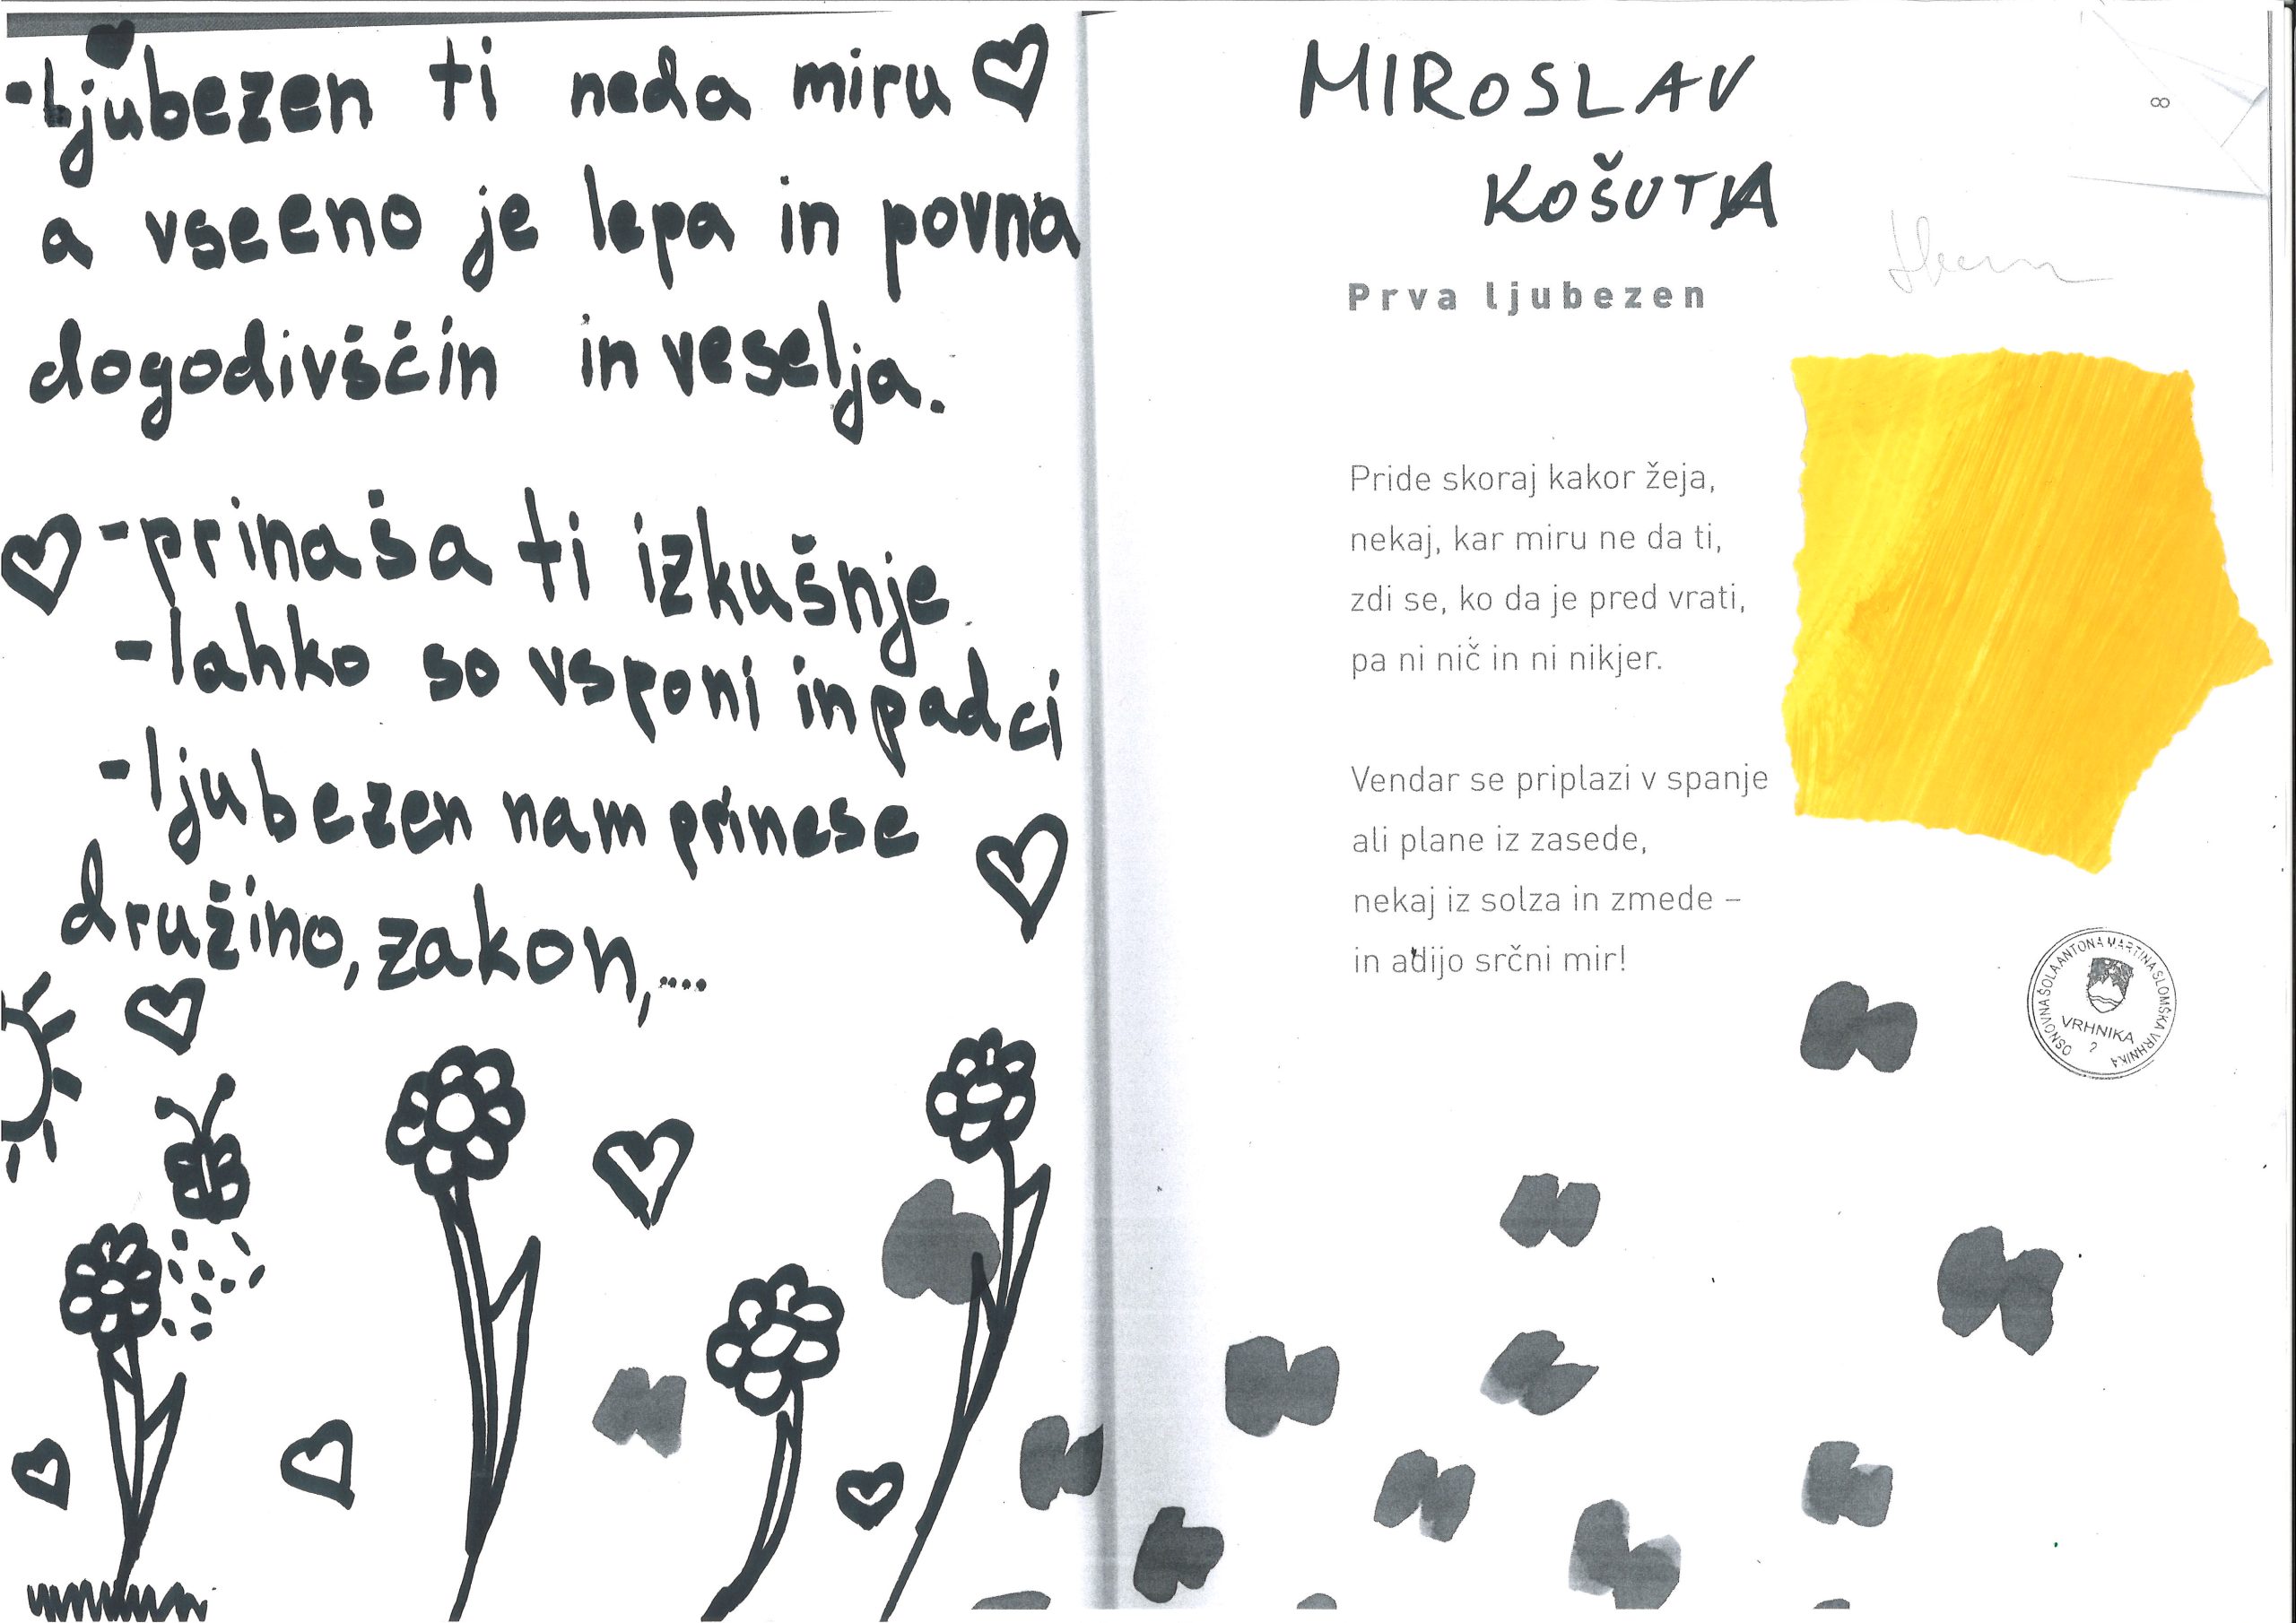 -Ljubezen ti neda miru
a vseeno je lepa in povna
dogodivščin in veselja.
-prinaša ti izkušnje
-lahko so vsponi in padci
-ljubezen nam prinese
družino, zakon,....
MIROSLAV
KOŠUTA
8
Prva ljubezen
Pride skoraj kakor žeja,
nekaj, kar miru ne da ti,
zdi se, ko da je pred vrati,
pa ni nič in ni nikjer.
Vendar se priplazi v spanje
ali plane iz zasede,
nekaj iz solza in zmede –
in adijo srčni mir!
OSNOVNA ŠOLA ANTONA MARTINA SLOMŠKA VRHNIKA
VRHNIKA
2